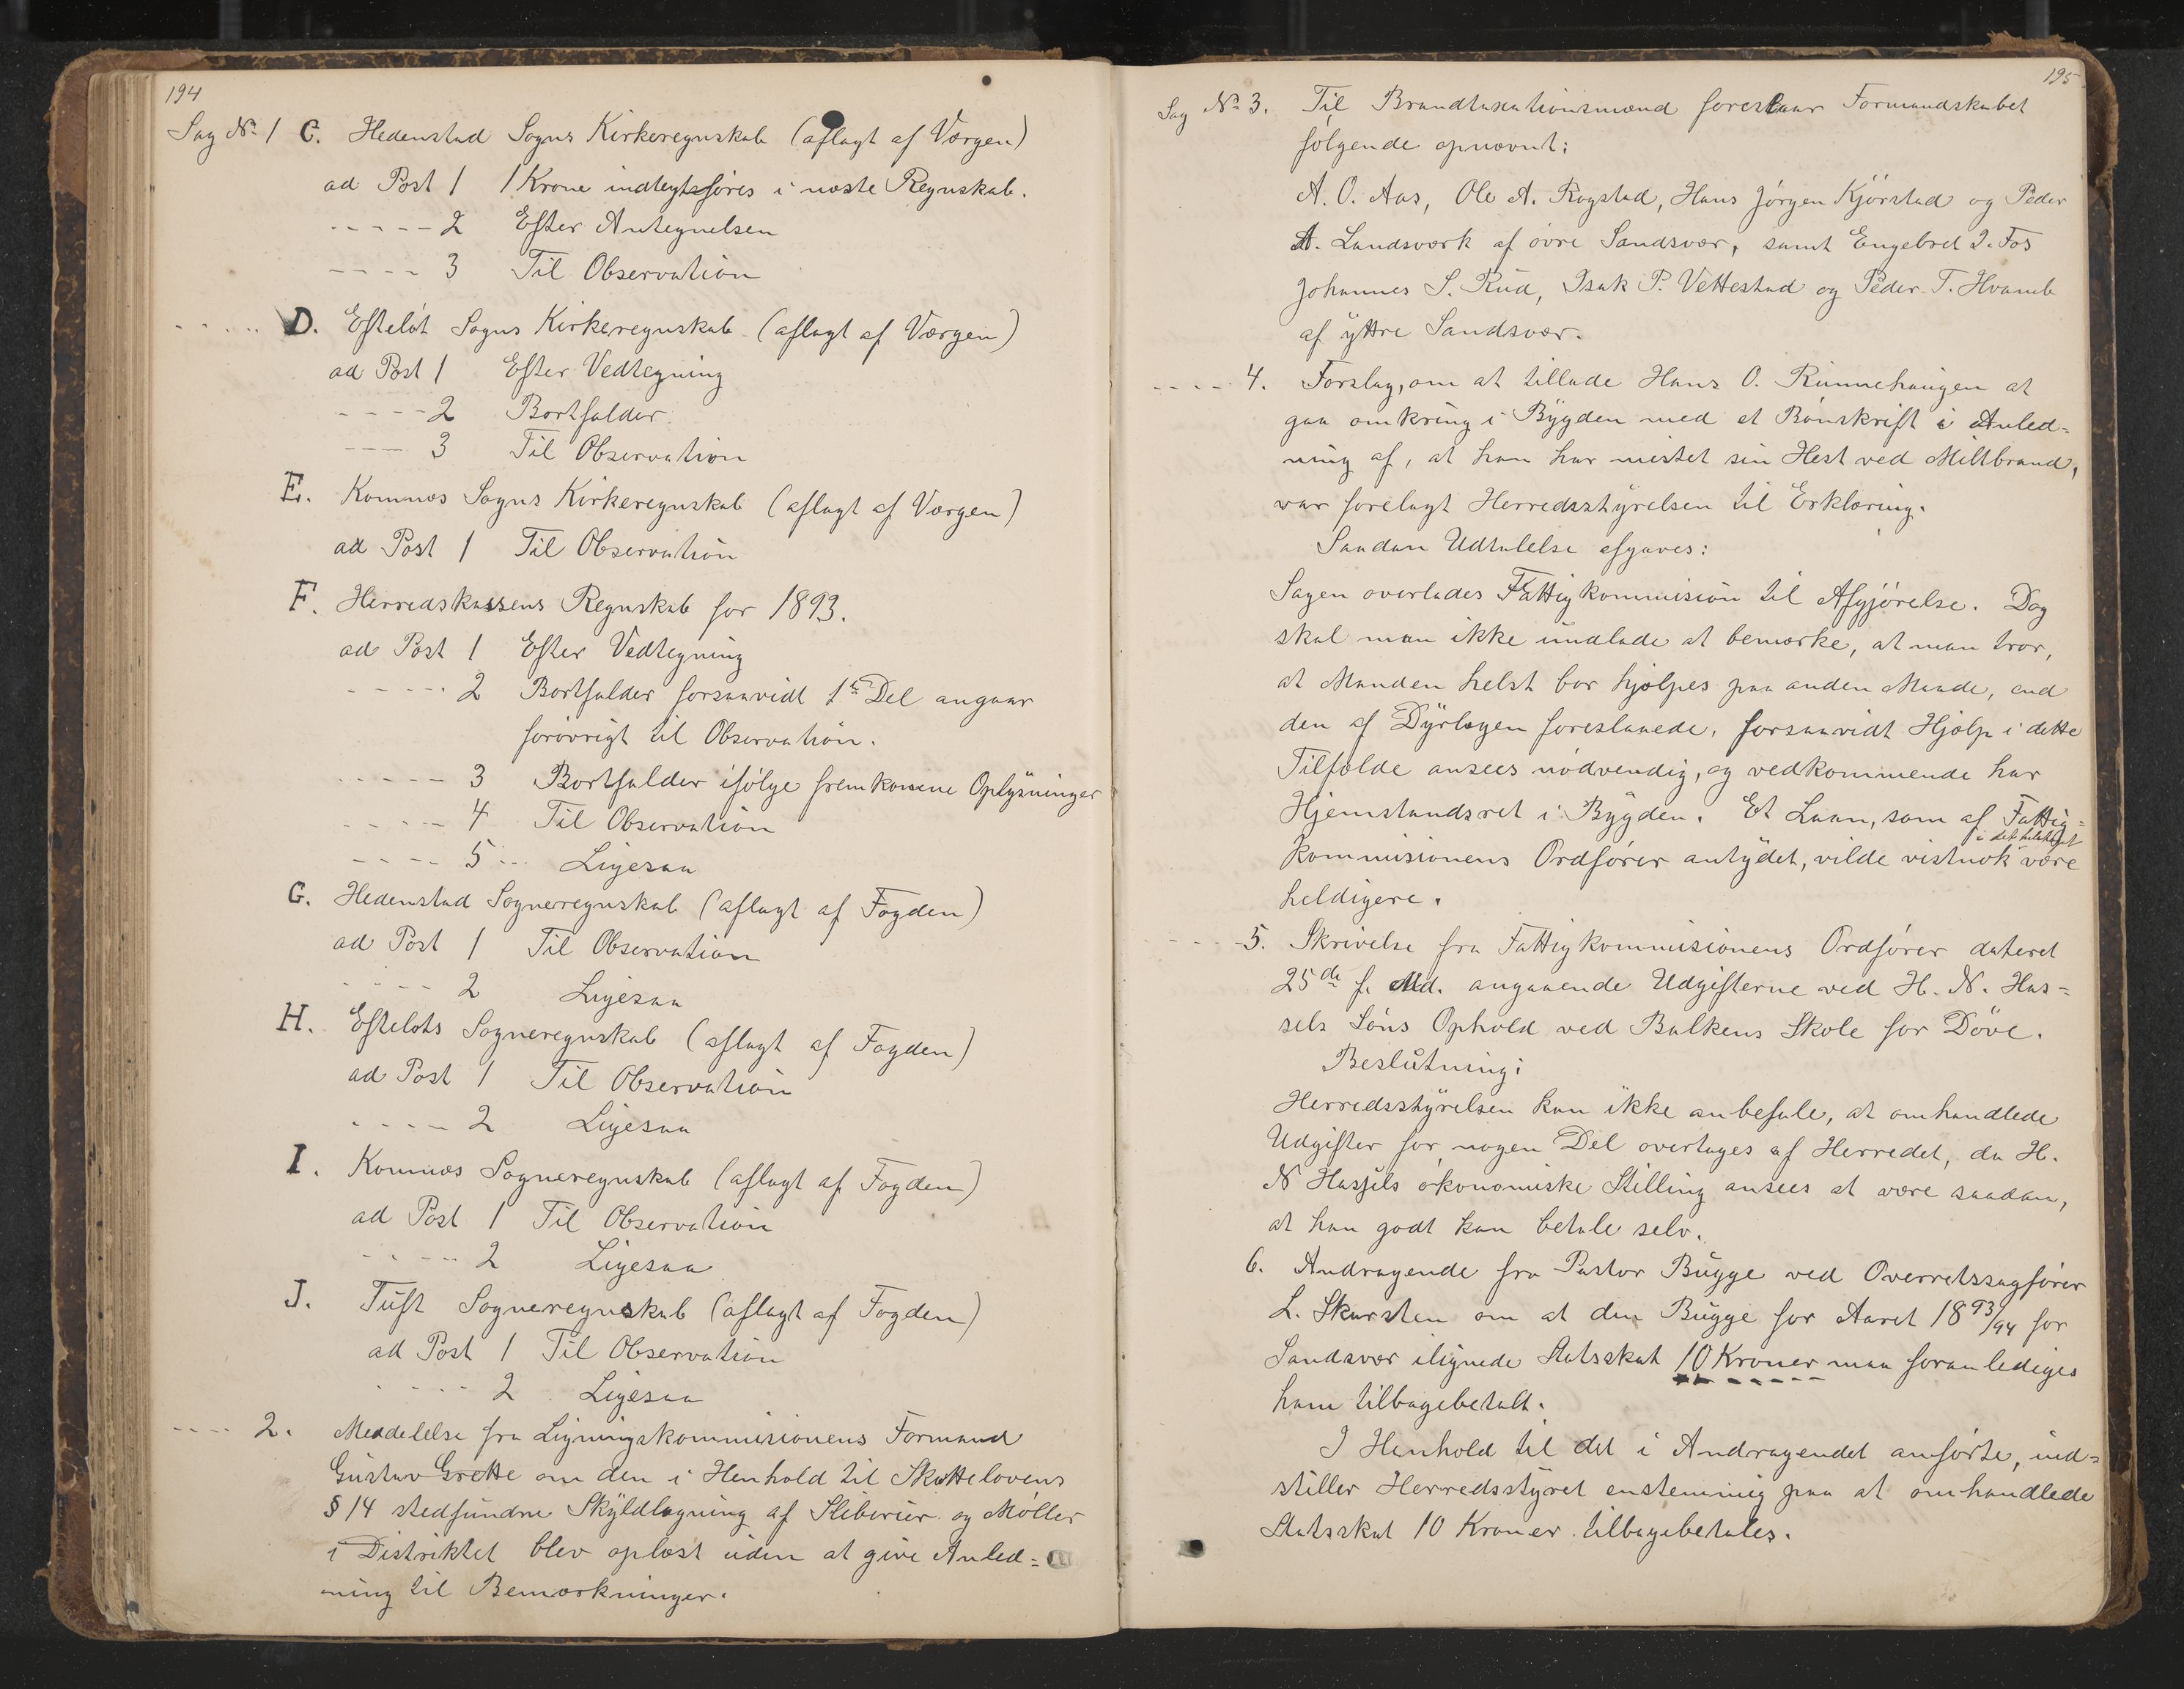 194
Sag № 1 C. Hedenstad Sogns Kirkeregnskab (aflagt af Værgen)
ad Post 1 1 Krone indtegtsføres i næste Regnskab.
- - - - - 2 Efter Antegnelsen
- - - - 3 Til Observation
- - - - - D. Efteløt Sogns Kirkeregnskab (aflagt af Værgen)
ad Post 1 Efter Vedtegning
- - - - 2 Bortfalder
- - - 3 Til Observation
E. Komnæs Sogns Kirkeregnskab (aflagt af Værgen)
ad Post 1 Til Observation
F. Herredskassens Regnskab for 1893.
ad Post 1 Efter Vedtegning
- - - - - 2 Bortfalder forsaavidt 1ste Del angaar
forøvrigt til Observation.
- - - - - 3 Bortfalder ifølge fremkomne Oplysninger
- - - - - 4 Til Observation
- - - - 5 - - Ligesaa
G. Hedenstad Sogneregnskab (aflagt af Fogden)
ad Post 1 Til Observation
- - - - 2 Ligesaa
H. Efteløts Sogneregnskab (aflagt af Fogden)
ad Post 1 Til Observation
- - - - 2 Ligesaa
I. Komnæs Sogneregnskab (aflagt af Fogden)
ad Post 1 Til Observation
- - - - - 2 Ligesaa
J. Tuft Sogneregnskab (aflagt af Fogden)
ad Post 1 Til Observation
- - - - 2 Ligesaa
- - - - 2. Meddelelse fra Ligningskommisionens Formand
Gustav Grette om den i Henhold til Skattelovens
§ 14 stedfundne Skyldlægning af Sliberier og Møller
i Distriktet blev oplæst uden at give Anled=
ning til Bemærkninger.
195
Sag № 3. Til Brandtaxationsmænd foreslaar Formandskabet
følgende opnævnt:
A. O. Aas, Ole A. Rogstad, Hans Jørgen Kjørstad og Peder
A. Landsværk af øvre Sandsvær, samt Engebret I. Fos
Johannes S. Rud, Isak P. Vettestad og Peder T. Hvamb
af yttre Sandsvær.
- - - - 4. Forslag, om at tillade Hans O. Runnehaugen at
gaa omkring i Bygden med et Bønskrift i Anled=
ning af, at han har mistet sin Hest ved Miltbrand,
var forelagt Herredsstyrelsen til Erklæring.
Saadan Udtalelse afgaves:
Sagen overlades Fattigkommision til Afgjørelse. Dog
skal man ikke undlade at bemærke, at man tror,
at Manden helst bør hjælpes paa anden Maade, end
den af Dyrlægen foreslaaede, forsaavidt Hjælp i dette
Tilfælde ansees nødvendig, og vedkommende har
Hjemstandsret i Bygden. Et Laan, som af Fattig=
kommisionens Ordfører antydet, vilde vistnok i det hele taget være
heldigere.
- - - - 5. Skrivelse fra Fattigkommisionens Ordfører dateret
25de f. Md. angaaende Udgifterne ved H. N. Has=
sels Søns Ophold ved Balkens Skole for Døve.
Beslutning:
Herredsstyrelsen kan ikke anbefale, at omhandlede
Udgifter for nogen Del overtages af Herredet, da H.
N Hassels økonomiske Stilling ansees at være saadan,
at han godt kan betale selv.
6. Andragende fra Pastor Bugge ved Overretssagfører
L. Skarsten om at den Bugge for Aaret 1893/94 for
Sandsvær ilignede Statsskat 10 Kroner maa foranlediges
ham tilbagebetalt.
I Henhold til det i Andragendet anførte, ind=
stiller Herredsstyret enstemmig paa at omhandlede
Statsskat 10 Kroner tilbagebetales.